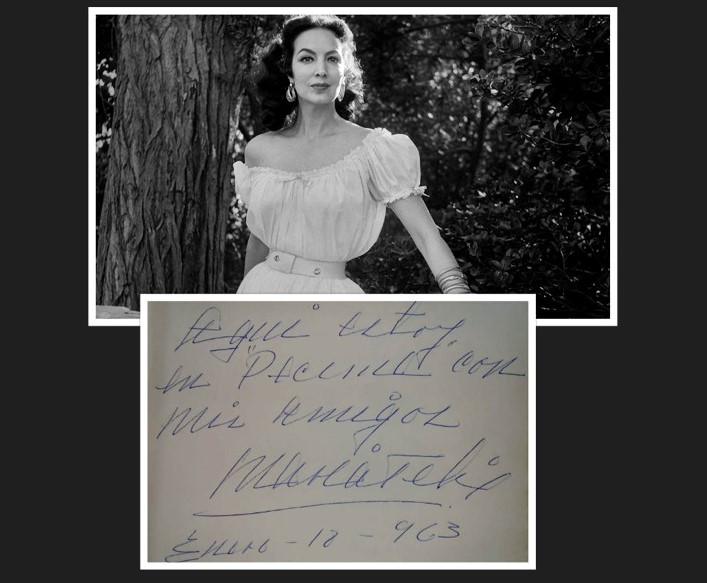 Aquí estoy
en "Pecime" con
mis amigos
María Félix
Enero - - 963